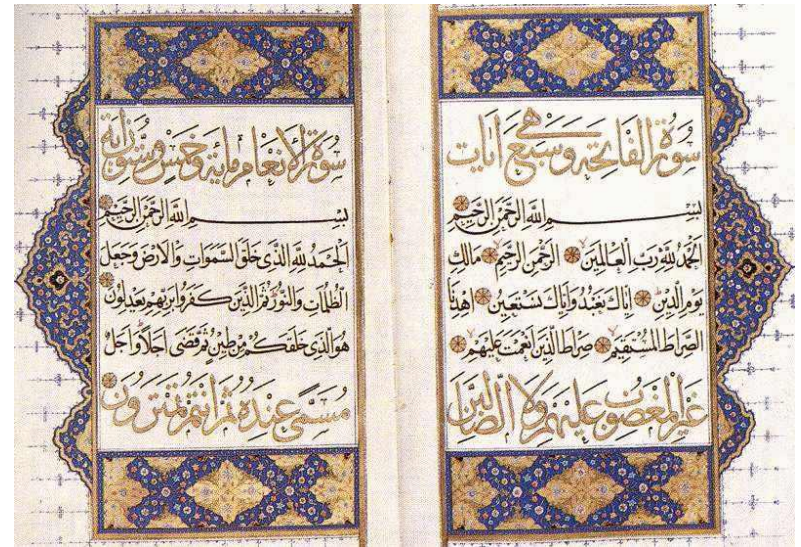 سورة الفاتحة وهي سبع آيات
بسم الله الرحمن الرحيم
الحمد لله رب العالمين الرحمن الرحيم مالك
يوم الدين إياك نعبد وإياك نستعين اهدنا
الصراط المستقيم صراط الذين أنعمت عليهم
غير المغضوب عليهم ولا الضالين
سورة الأنعام مائة وخمس وستون آية
بسم الله الرحمن الرحيم
الحمد لله الذي خلق السموات والأرض وجعل
الظلمات والنور ثم الذين كفروا بربهم يعدلون
هو الذي خلقكم من طين ثم قضى أجلا وأجل
مسمى عنده ثم أنتم تمترون